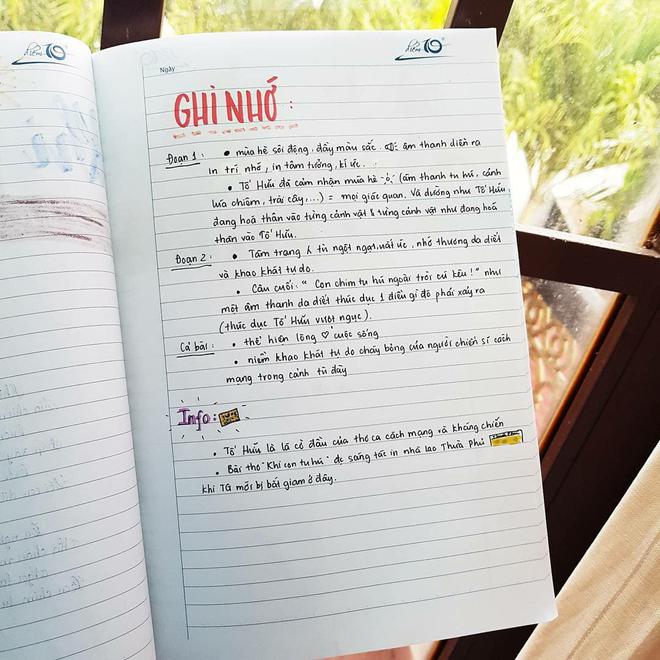 điểm 10
điểm 10
Ngày
GHI NHỚ :
Đoạn 1 : • mùa hè sôi động, đầy màu sắc. âm thanh diễn ra
in trí nhớ, in tâm tưởng, kí ức.
• Tố Hữu đã cảm nhận mùa hè = (âm thanh tu hú, cánh
lúa chiêm, trái cây,...) = mọi giác quan. Và dường như Tố Hữu
đang hoá thân vào từng cảnh vật & từng cảnh vật như đang hoá
thân vào Tố Hữu.
Đoạn 2 : • Tâm trạng tù ngột ngạt, uất ức, nhớ thương da diết
và khao khát tự do.
• Câu cuối: " Con chim tu hú ngoài trời cứ kêu ! " như
một âm thanh da diết thúc dục 1 điều gì đó phải xảy ra
(thúc dục Tố Hữu vượt ngục).
Cả bài : • thể hiện lòng ♡ cuộc sống
• niềm khao khát tự do cháy bỏng của người chiến sĩ cách
mạng trong cảnh tù đày
Info :
• Tố Hữu là lá cờ đầu của thơ ca cách mạng và kháng chiến
• Bài thơ "Khi con tu hú" đc sáng tác in nhà lao Thừa Phủ
khi TG mới bị bắt giam ở đây.